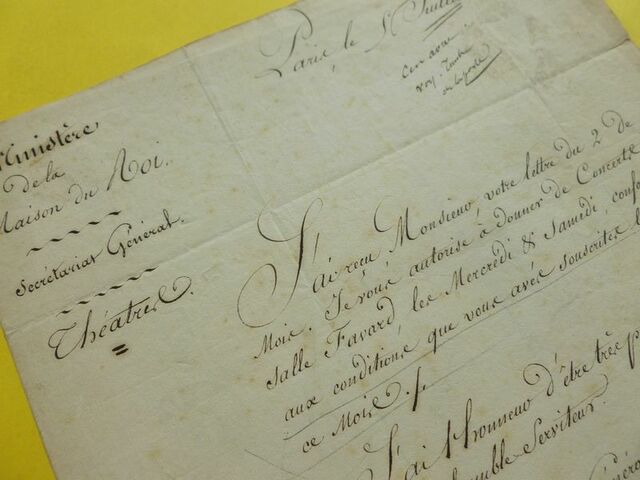 Paris, le 5 Juillet
Ministère
de la
Maison du Roi.
Secrétariat Général.
Théatres.
J'ai reçu Monsieur, votre lettre du 2 de
Mois. Je vous autorise à donner de Concerts
Salle Favard, les Mercredi 8 Samedi,
aux conditions que vous avés souscrites
ce Mois.
J'ai l'honneur d'être très
humble Serviteur.